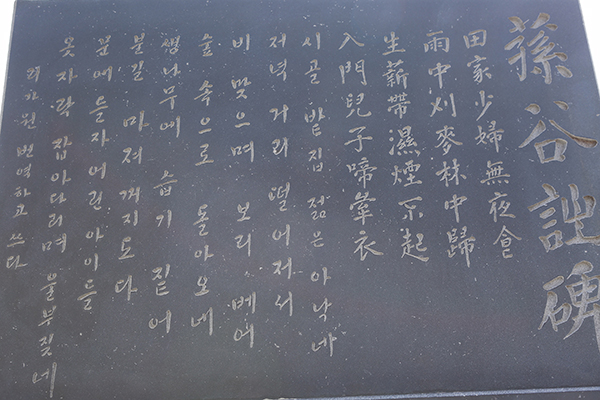 蓀谷詩碑
田家少婦無夜食
雨中刈麥林中歸
生薪帶濕煙不起
入門兒子啼牽衣
시골 밭집 젊은 아낙네
저녁 거리 떨어져서
비 맞으며 보리 베어
숲 속으로 돌아오네
생나무에 습기 짙어
불길 마져 꺼지도다
문에 들자 어린 아이들
옷자락 잡아다리며 울부짖네
리가원 번역하고 쓰다